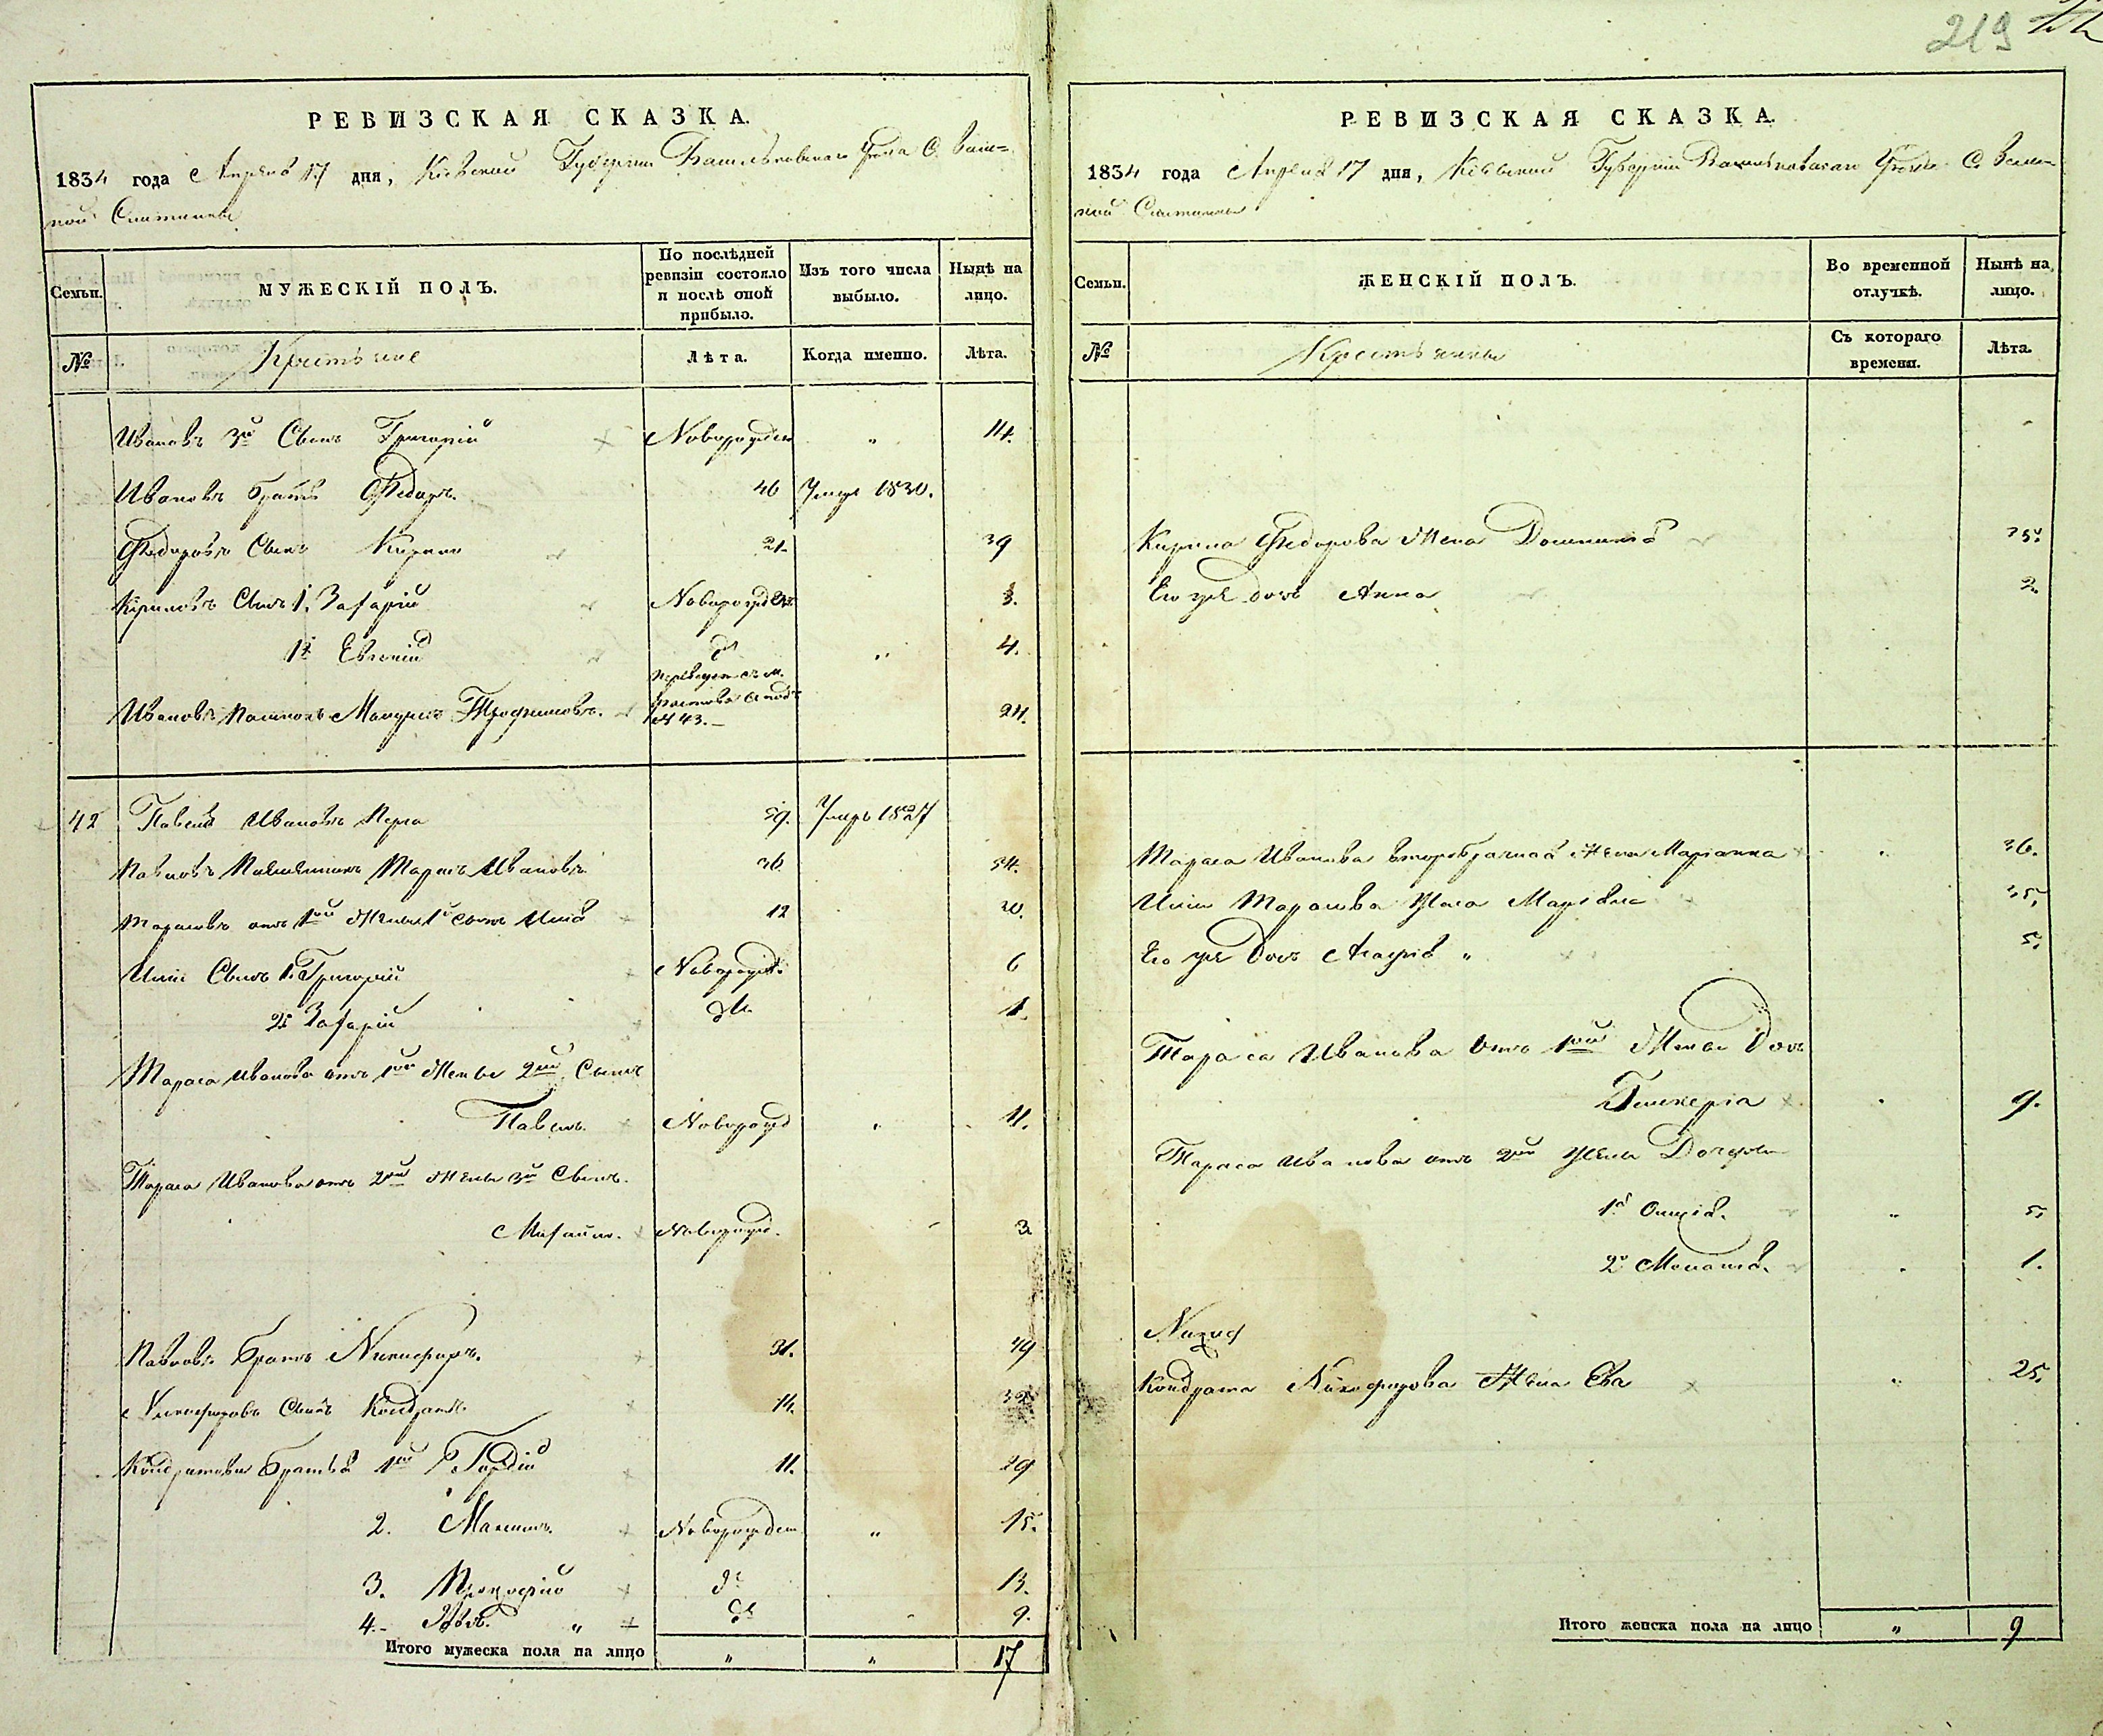 219
РЕВИЗСКАЯ СКАЗКА.
1834 года Апреля 17 дня, Кіевской Губерніи Васильковскаго Уезда С. Вели=
кой Снитинки
Семьи.
МУЖЕСКІЙ ПОЛЪ.
По послѣдней ревизіи состояло и послѣ оной прибыло.
Изъ того числа выбыло.
Нынѣ на лицо.
№
Крестьяне
Лѣта.
Когда именно.
Лѣта.
Ивановъ 3й Сынъ Григорій Новорожден „ 14.
Ивановъ братъ Федоръ. 46 Умеръ 1830.
Федоровъ Сынъ Кирило 21 39
Кириловъ Сынъ 1. Захарій Новорожден 8.
Евгеній „ 4.
Ивановъ Трофимовъ. № 43. 24.
42 Павелъ Ивановъ 59. Умеръ 1827
Павловъ Племянникъ Тарасъ Ивановъ 36 54.
Тарасовъ отъ 1ой Жены 1й сынъ Илія 12 30.
Иліи Сынъ 1. Григорій Новорожд. 6
2й Захарій 1.
Тараса Иванова отъ 1ой Жены 2ой Сынъ
Павелъ. Новорожд „ 11.
Тараса Иванова отъ 2ой Жены 3й Сынъ.
Михаилъ. Новорожд. 3
Павловъ Братъ Никифоръ. 31. 49
Никифоровъ Сынъ Кондратъ. 14. 32
Кондратовы Братья 1ый Гордій 11. 29
2. Максимъ. Новорожден „ 15.
3. Прокофій 13.
4. „ 9.
Итого мужеска пола на лицо „ „ 17
РЕВИЗСКАЯ СКАЗКА.
1834 года Апреля 17 дня, Кіевской Губерніи Васильковскаго Уезда С. Вели=
кой Снитинки
Семьи.
ЖЕНСКІЙ ПОЛЪ.
Во временной отлучкѣ.
Нынѣ на лицо.
№
Крестьянки
Съ котораго времени.
Лѣта.
Кирила Федорова Жена Домникія 35.
Его же дочь Анна 2.
Тараса Иванова второбрачная Жена Маріанна „ 36.
Иліи Тарасова Жена 35.
Его же Дочь „ 5.
Тараса Иванова отъ 1ой Жены Дочь
Гликерія 9.
Тараса Иванова отъ 2ой Жены Дочери
1я „ 5.
2я 1.
Кондрата Никифорова Жена Ева „ 25.
Итого женска пола на лицо „ 9